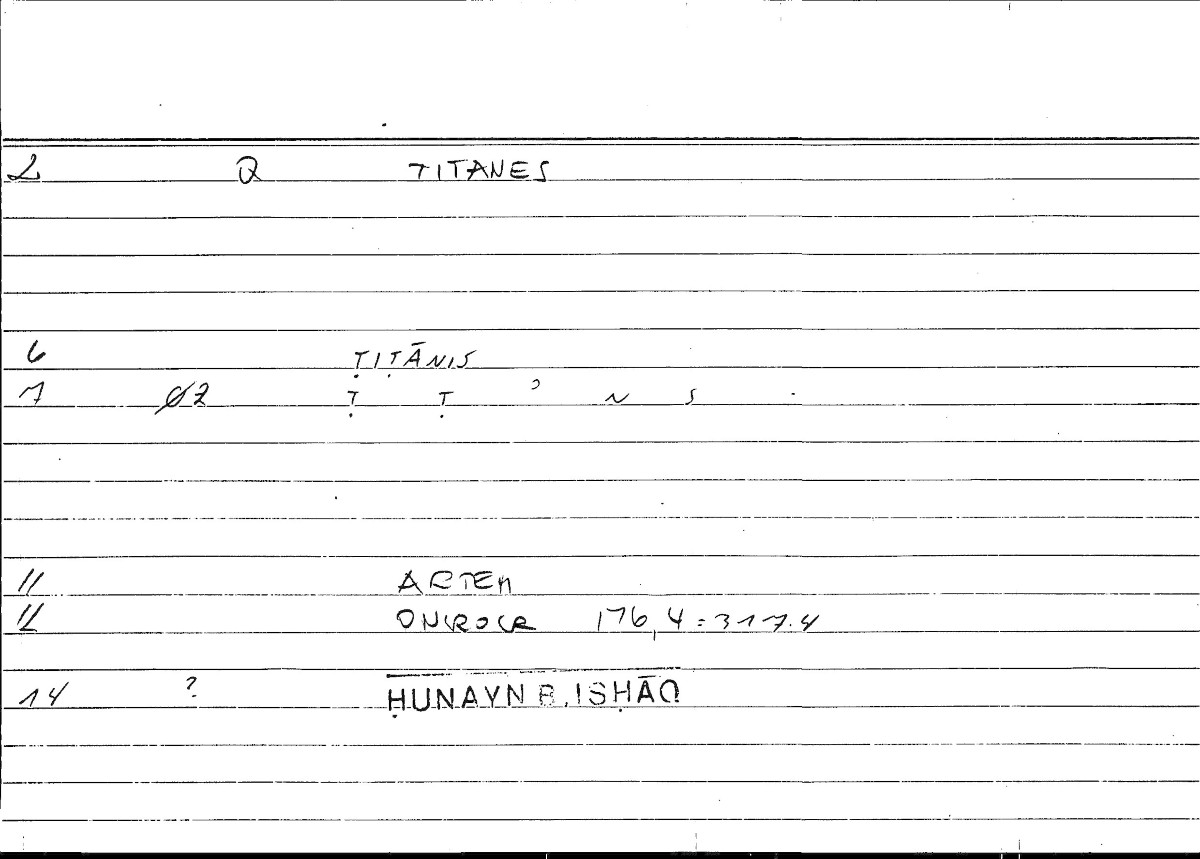 2 Q TITANES
6 ṬIṬĀNIS
7 Ø2 Ṭ Ṭ ʾ N S
11 ARTEM
12 ONIROCR 176,4 = 317.4
14 ? ḤUNAYN B. ISḤĀQ